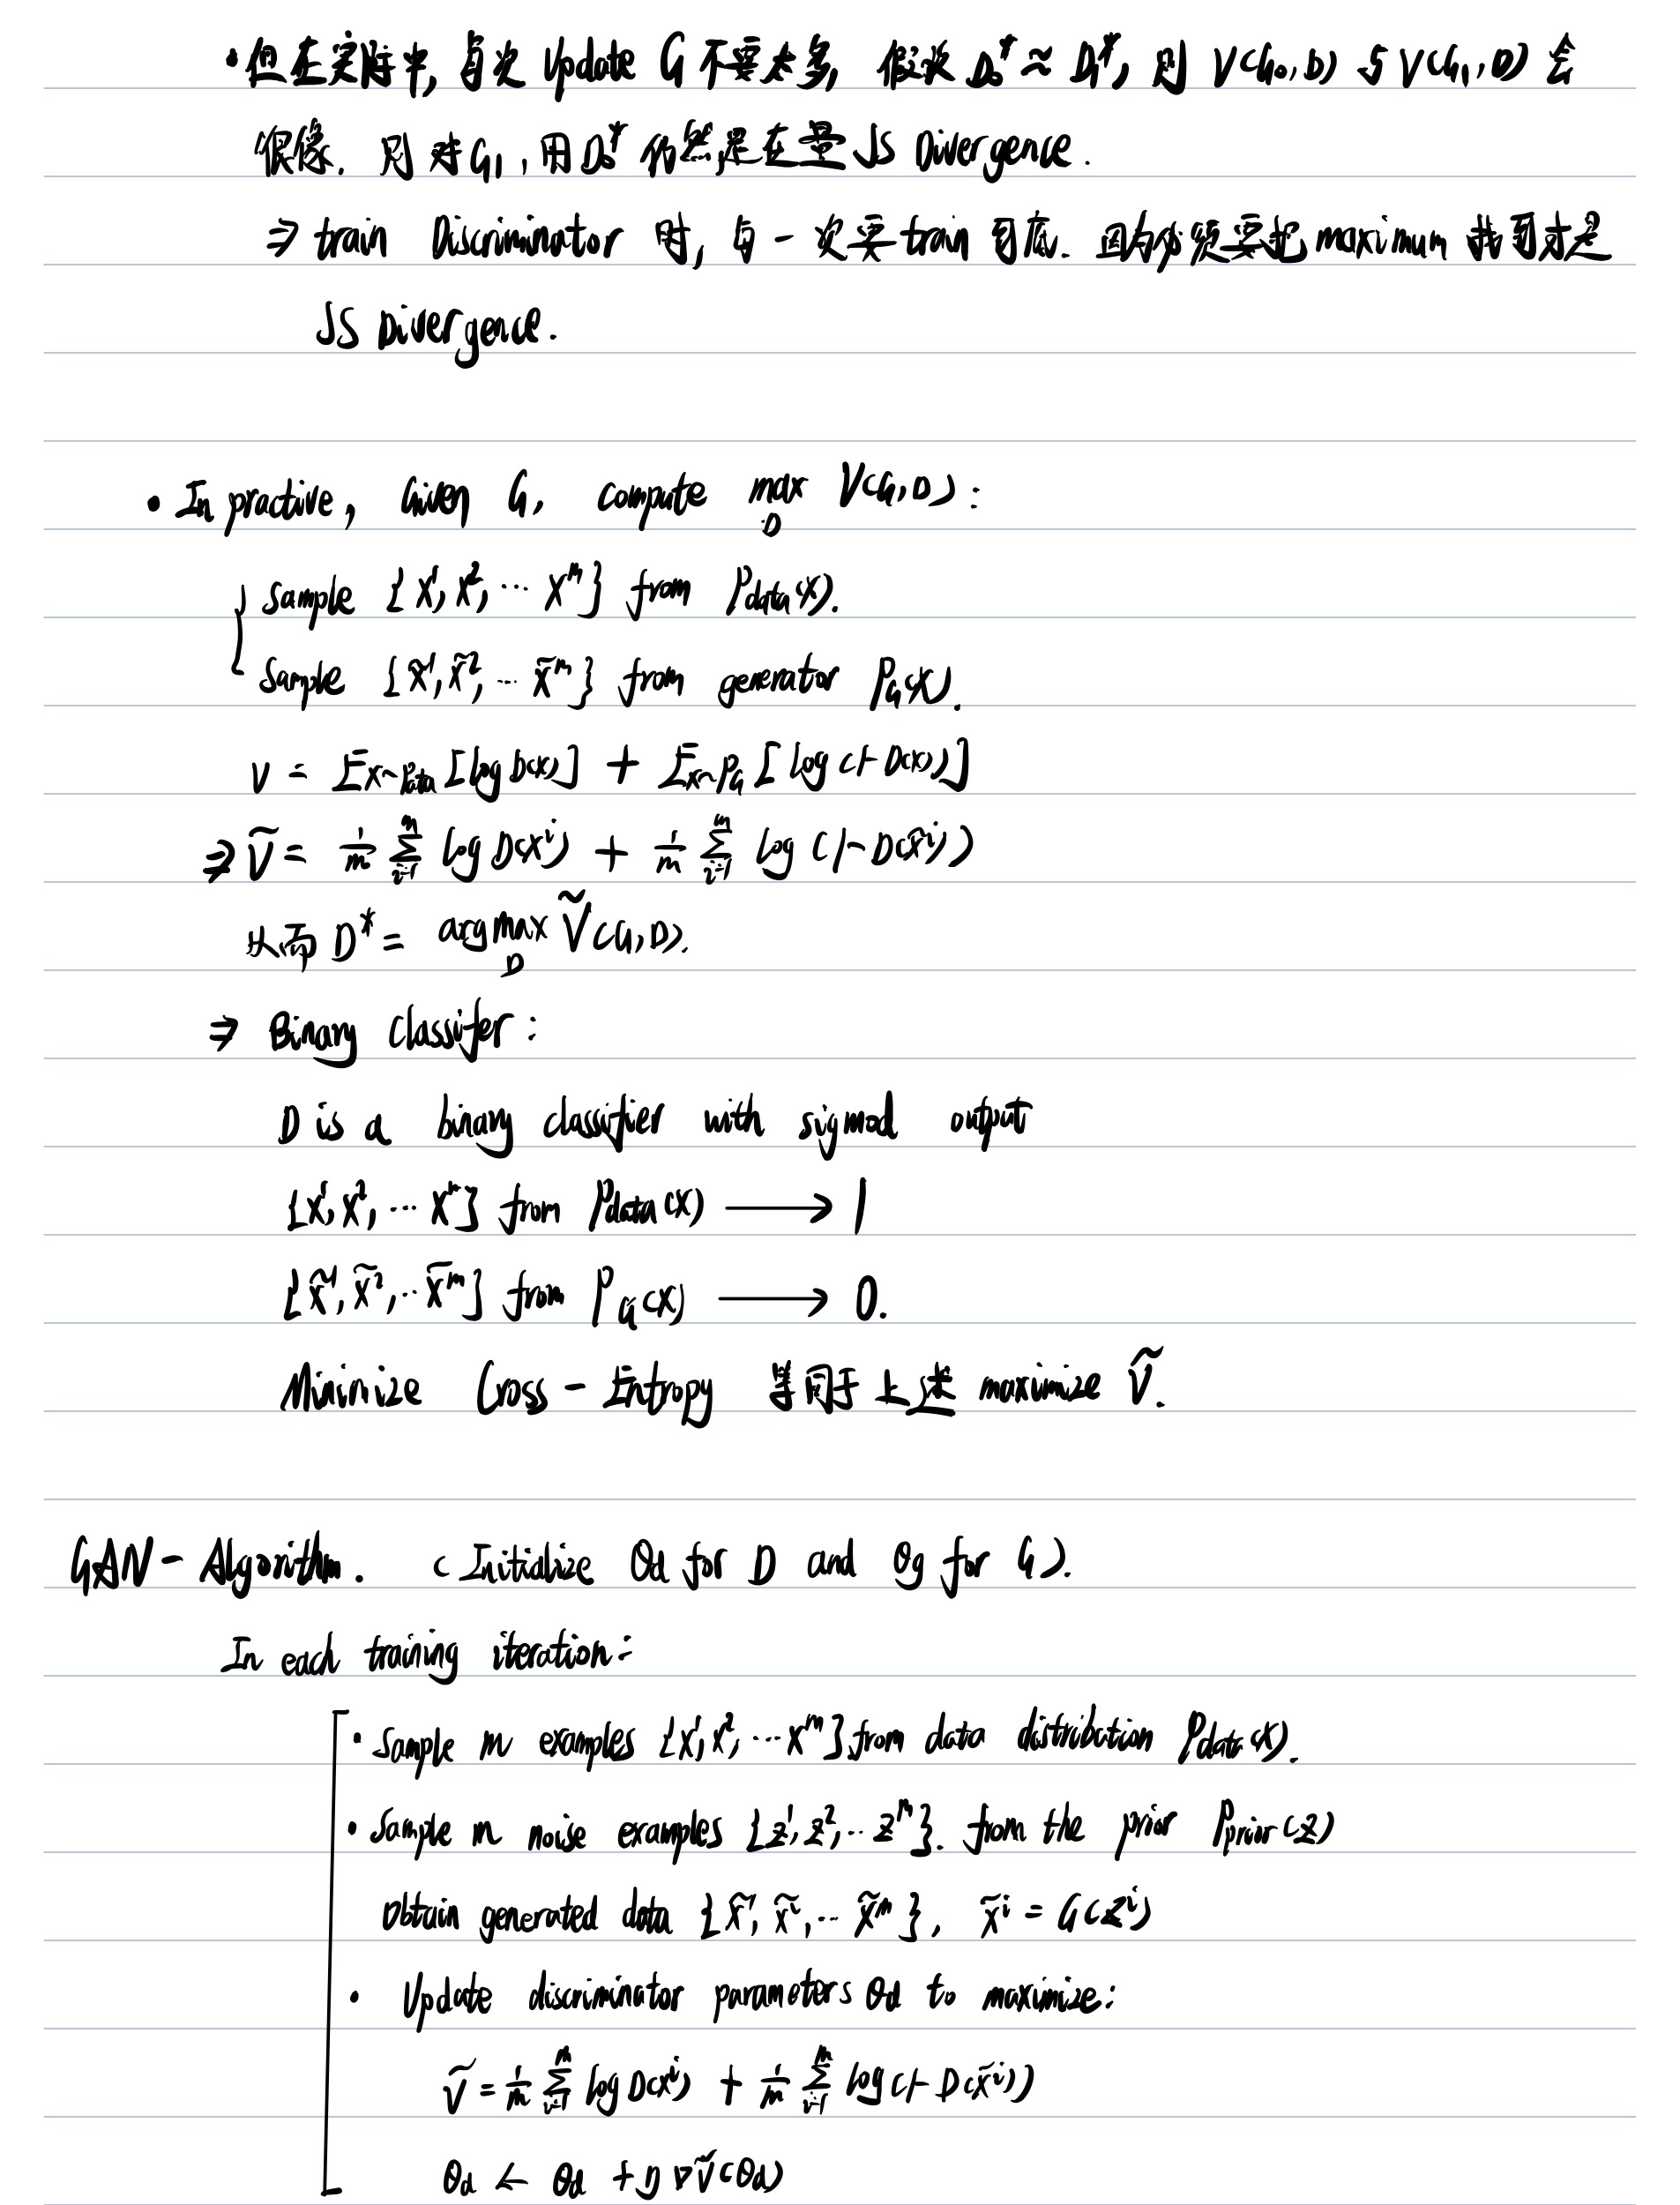 • 但在实际中, 每次 Update G 不要太多, 假设 D₀* ≈ D₁*, 则 V(G₀, D) 与 V(G₁, D) 会
很像. 则对 G₁, 用 D₀* 仍然是在量 JS Divergence.
⇒ train Discriminator 时, 每一次要 train 到底. 因为必须要把 maximum 找到才是
JS Divergence.
• In practive, Given G, compute max_D V(G, D):
Sample {x¹, x², ⋯ x^m} from P_data(x).
Sample {x̃¹, x̃², ⋯ x̃^m} from generator P_G(x).
V = E_{x∼P_data}[log D(x)] + E_{x∼P_G}[log(1-D(x))]
⇒ Ṽ = 1/m ∑_{i=1}^m log D(x^i) + 1/m ∑_{i=1}^m log(1-D(x̃^i))
从而 D* = arg max_D Ṽ(G, D).
⇒ Binary Classifer:
D is a binary classifier with sigmod output
{x¹, x², ⋯ x^m} from P_data(x) ⟶ 1
{x̃¹, x̃², ⋯ x̃^m} from P_G(x) ⟶ 0.
Minimize Cross-Entropy 等同于上述 maximize Ṽ.
GAN - Algorithm. (Initialize θd for D and θg for G).
In each training iteration:
• Sample m examples {x¹, x², ⋯ x^m} from data distribution P_data(x).
• Sample m noise examples {z¹, z², ⋯ z^m}. from the prior P_prior(z)
Obtain generated data {x̃¹, x̃^i, ⋯ x̃^m}, x̃^i = G(z^i)
• Update discriminator parameters θd to maximize:
Ṽ = 1/m ∑_{i=1}^m log D(x^i) + 1/m ∑_{i=1}^m log(1-D(x̃^i))
θd ← θd + η∇Ṽ(θd)